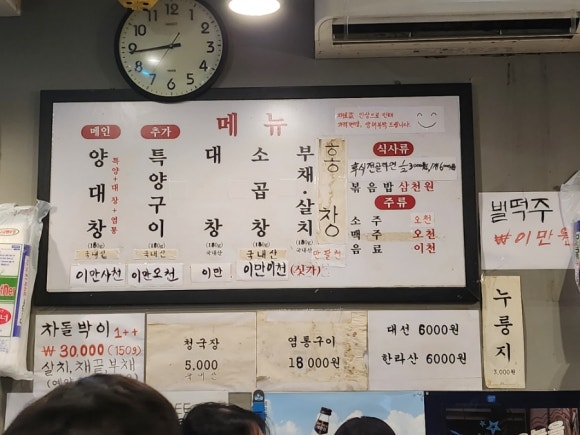 메뉴
메인
양대창
특양+대창+염통
(180g)
국내산
이만사천
추가
특양구이
(180g)
국내산
이만오천
대창
(180g)
국내산
이만
소곱창
(180g)
국내산
이만이천
부채.살치
(180g)
국내산
(싯가)
홍창
만팔천
식사류
볶음밥 삼천원
주류
소주 오천
맥주 오천
음료 이천
벌떡주
₩이만원
누룽지
3,000원
차돌박이 1++
₩30,000 (150g)
살치, 채끝, 부채
청국장
5,000
염통구이
18,000원
대선 6000원
한라산 6000원